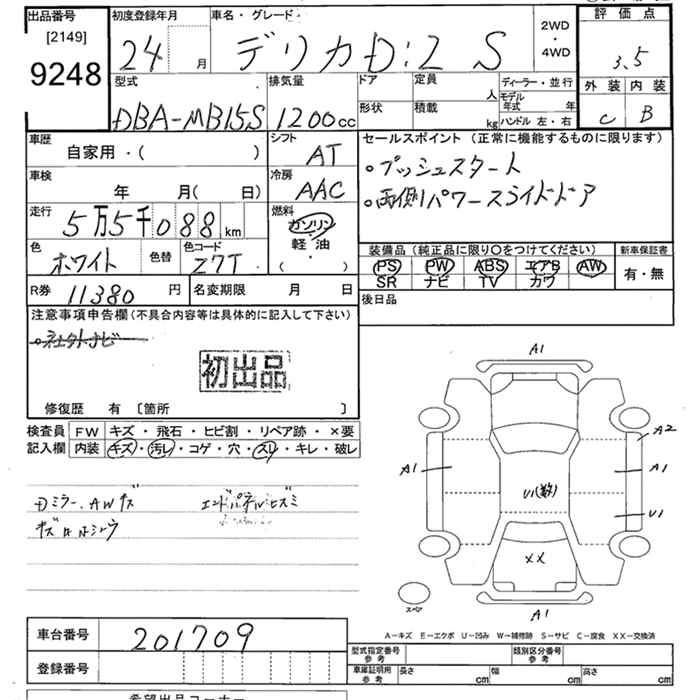 出品番号 初度登録年月 車名・グレード 2WD・4WD 評価点
[2149] 24 月 デリカD:2 S 3.5
9248
型式 排気量 ドア 定員 人 ディーラー・並行 外装 内装
DBA-MB15S 1200cc 形状 積載 kg モデル年式 年 C B
ハンドル 左・右
車歴 シフト セールスポイント (正常に機能するものに限ります)
自家用・( ) AT 。プッシュスタート
車検 冷房 。両側パワースライドドア
年 月( 日) AAC
走行 燃料
5万5千088km ガソリン
色 色替 色コード 軽・油 装備品(純正品に限り○をつけてください) 新車保証書
ホワイト Z7T ( ) PS PW ABS エアB AW 有・無
SR ナビ TV カワ
R券 11380円 名変期限 月 日 後日品
注意事項申告欄(不具合内容等は具体的に記入して下さい)
初出品
修復歴 有 〔箇所 〕
検査員 FW キズ・飛石・ヒビ割・リペア跡・×要
記入欄 内装 キズ・汚レ・コゲ・穴・スレ・キレ・破レ
Dミラー、AWキズ エンドパネルヒズミ
A1
A2
A1 A1
U1(数) U1
XX
スペア A1
A-キズ E-エクボ U-凹み W-補修跡 S-サビ C-腐食 XX-交換済
車台番号 201709
型式指定番号 参考 類別区分番号 参考
登録番号 車庫証明用 参考 長さ cm 幅 cm 高さ cm
希望出品コーナー